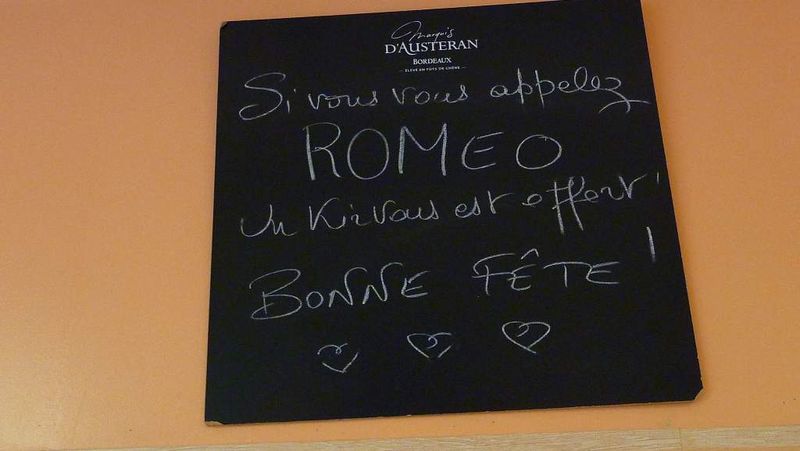 Marquis
D'AUSTERAN
BORDEAUX
ÉLEVÉ EN FÛTS DE CHÊNE
Si vous vous appelez
ROMEO
Un Kir vous est offert !
BONNE FÊTE !